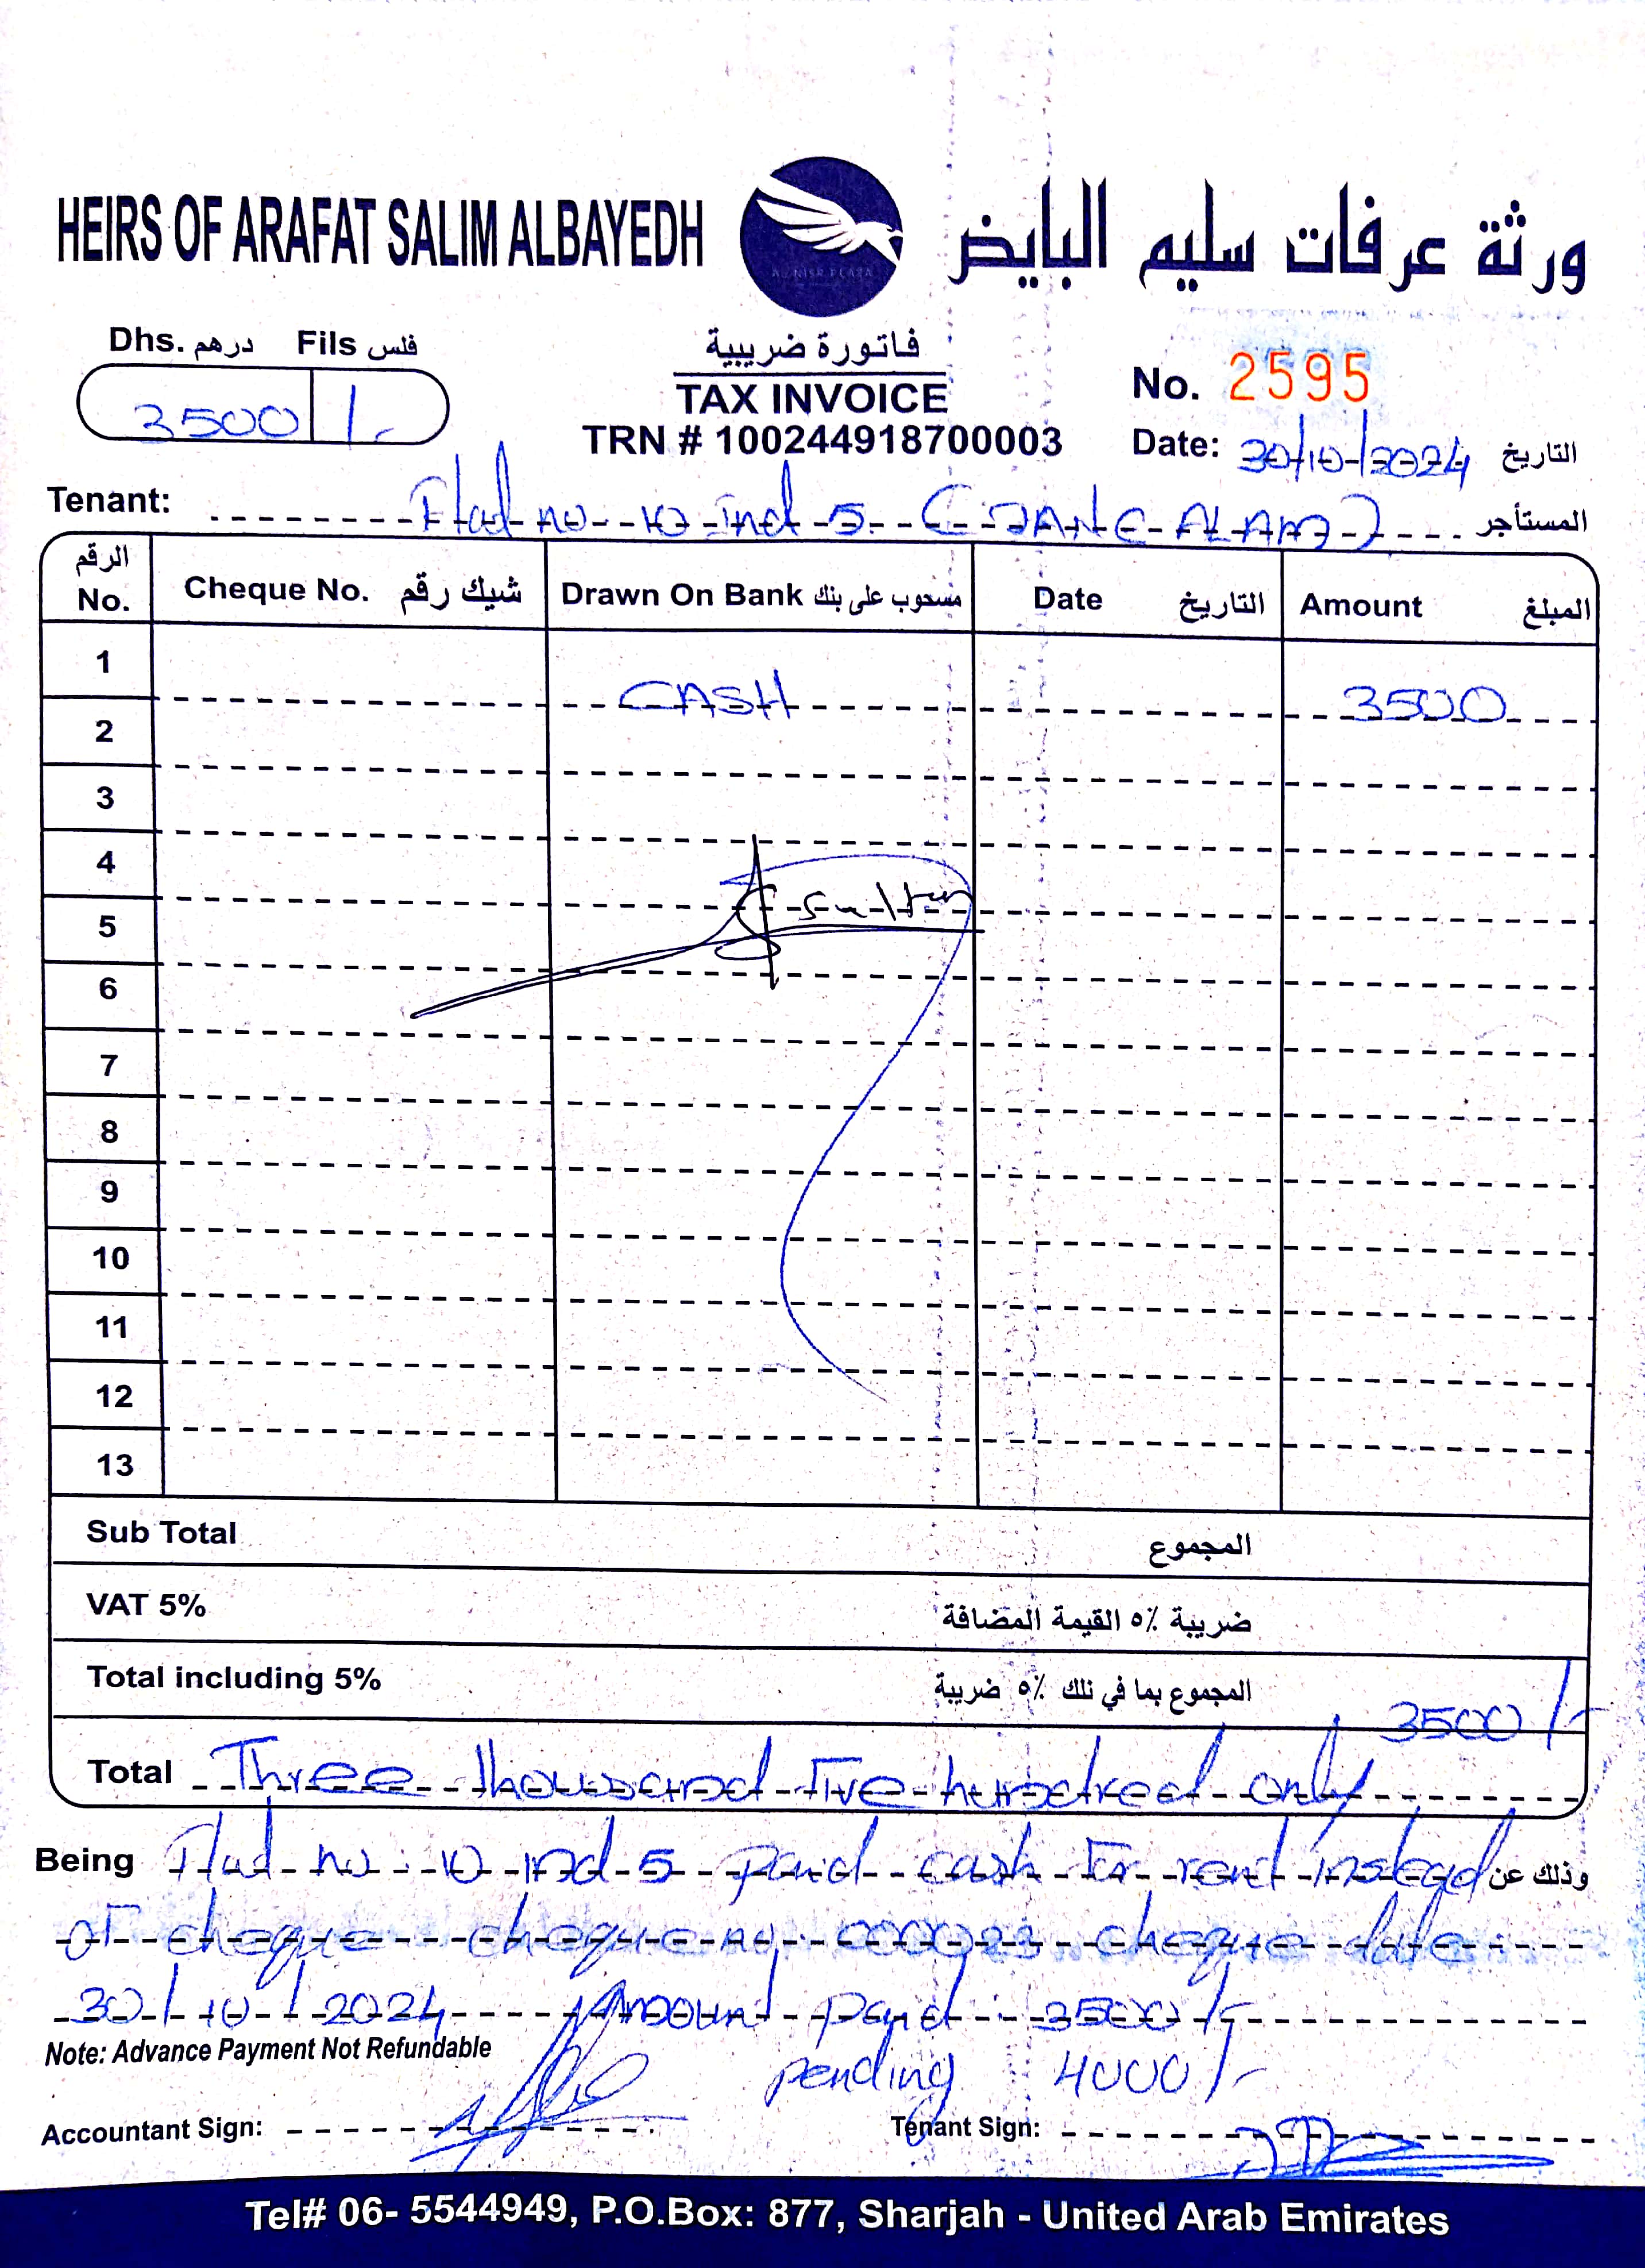 HEIRS OF ARAFAT SALIM ALBAYEDH
ورثة عرفات سليم البايض
AL NISR PLAZA
Dhs. درهم Fils فلس
3500 /-
فاتورة ضريبية
TAX INVOICE
TRN # 100244918700003
No. 2595
Date: 30/10/2024 التاريخ
Tenant: Flat no 10 ind 5 (JANE ALAM) المستأجر
الرقم No. Cheque No. شيك رقم Drawn On Bank مسحوب على بنك Date التاريخ Amount المبلغ
1 CASH 3500
2
3
4
5 Sultan
6
7
8
9
10
11
12
13
Sub Total المجموع
VAT 5% ضريبة ٥٪ القيمة المضافة
Total including 5% المجموع بما في ذلك ٥٪ ضريبة 3500/-
Total Three thousand Five hundred only
Being Flat no. 10 ind 5 paid cash for rent instead وذلك عن
of cheque cheque no. 000023 cheque date :
30/10/2024 Amount paid : 3500/-
Note: Advance Payment Not Refundable
pending 4000/-
Accountant Sign:
Tenant Sign:
Tel# 06- 5544949, P.O.Box: 877, Sharjah - United Arab Emirates